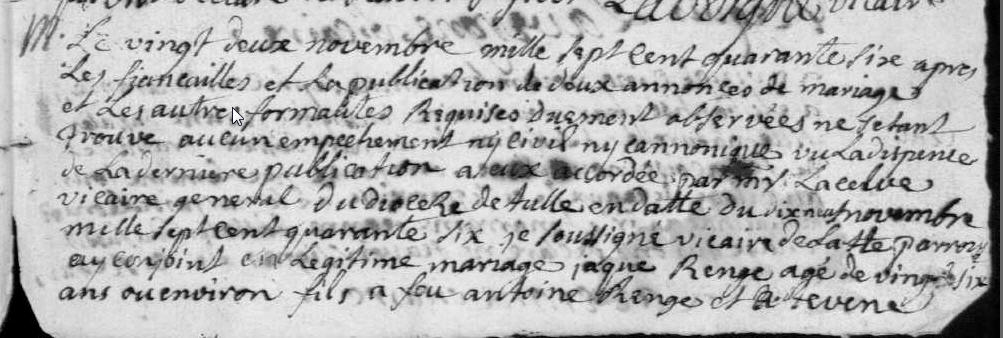 Lavergne vicaire
M. Le vingt deux novembre mille sept cent quarante six apres
Les fiencailles et La publication de deux annonces de mariage
et Les autres formalites Requises duement observées ne setant
trouve aucun empechement ny civil ny cannonique vu La dispense
de La derniere publication a eux accordée par mr. Laceive
vicaire general du diocese de tulle en datte du dix neuf novembre
mille sept cent quarante six je soussigne vicaire de Latte parroisse
ay conjoint en Legitime mariage jaque Renge agé de vingt six
ans ou environ fils a feu antoine Renge et tevene